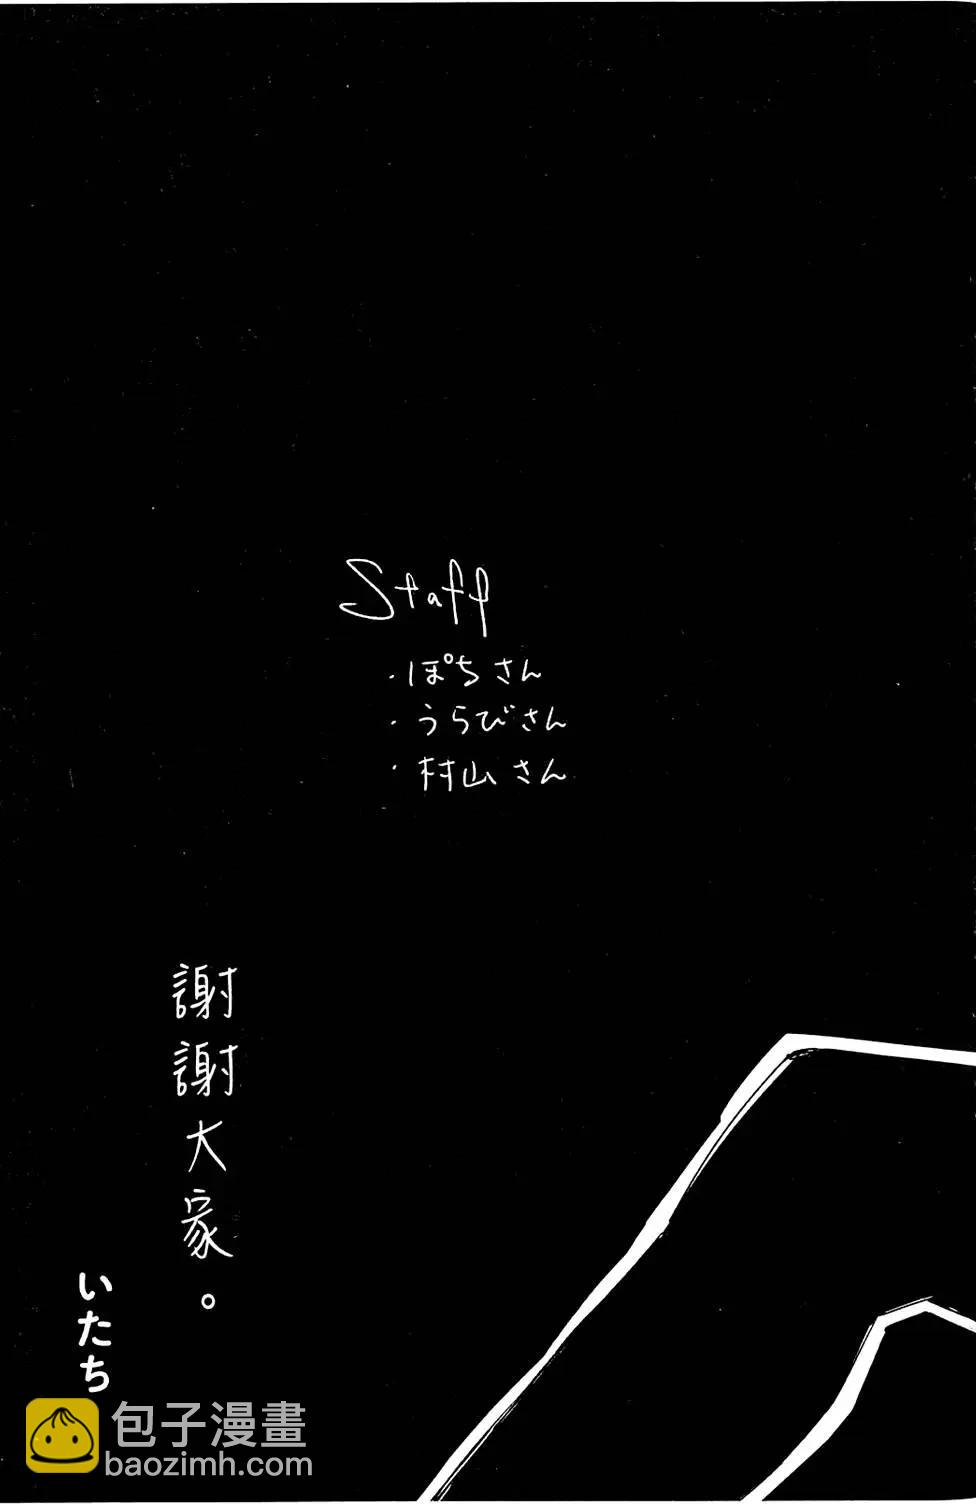 Staff
・ぽちさん
・うらびさん
・村山さん
謝謝大家。
いたち
包子漫畫
baozimh.com